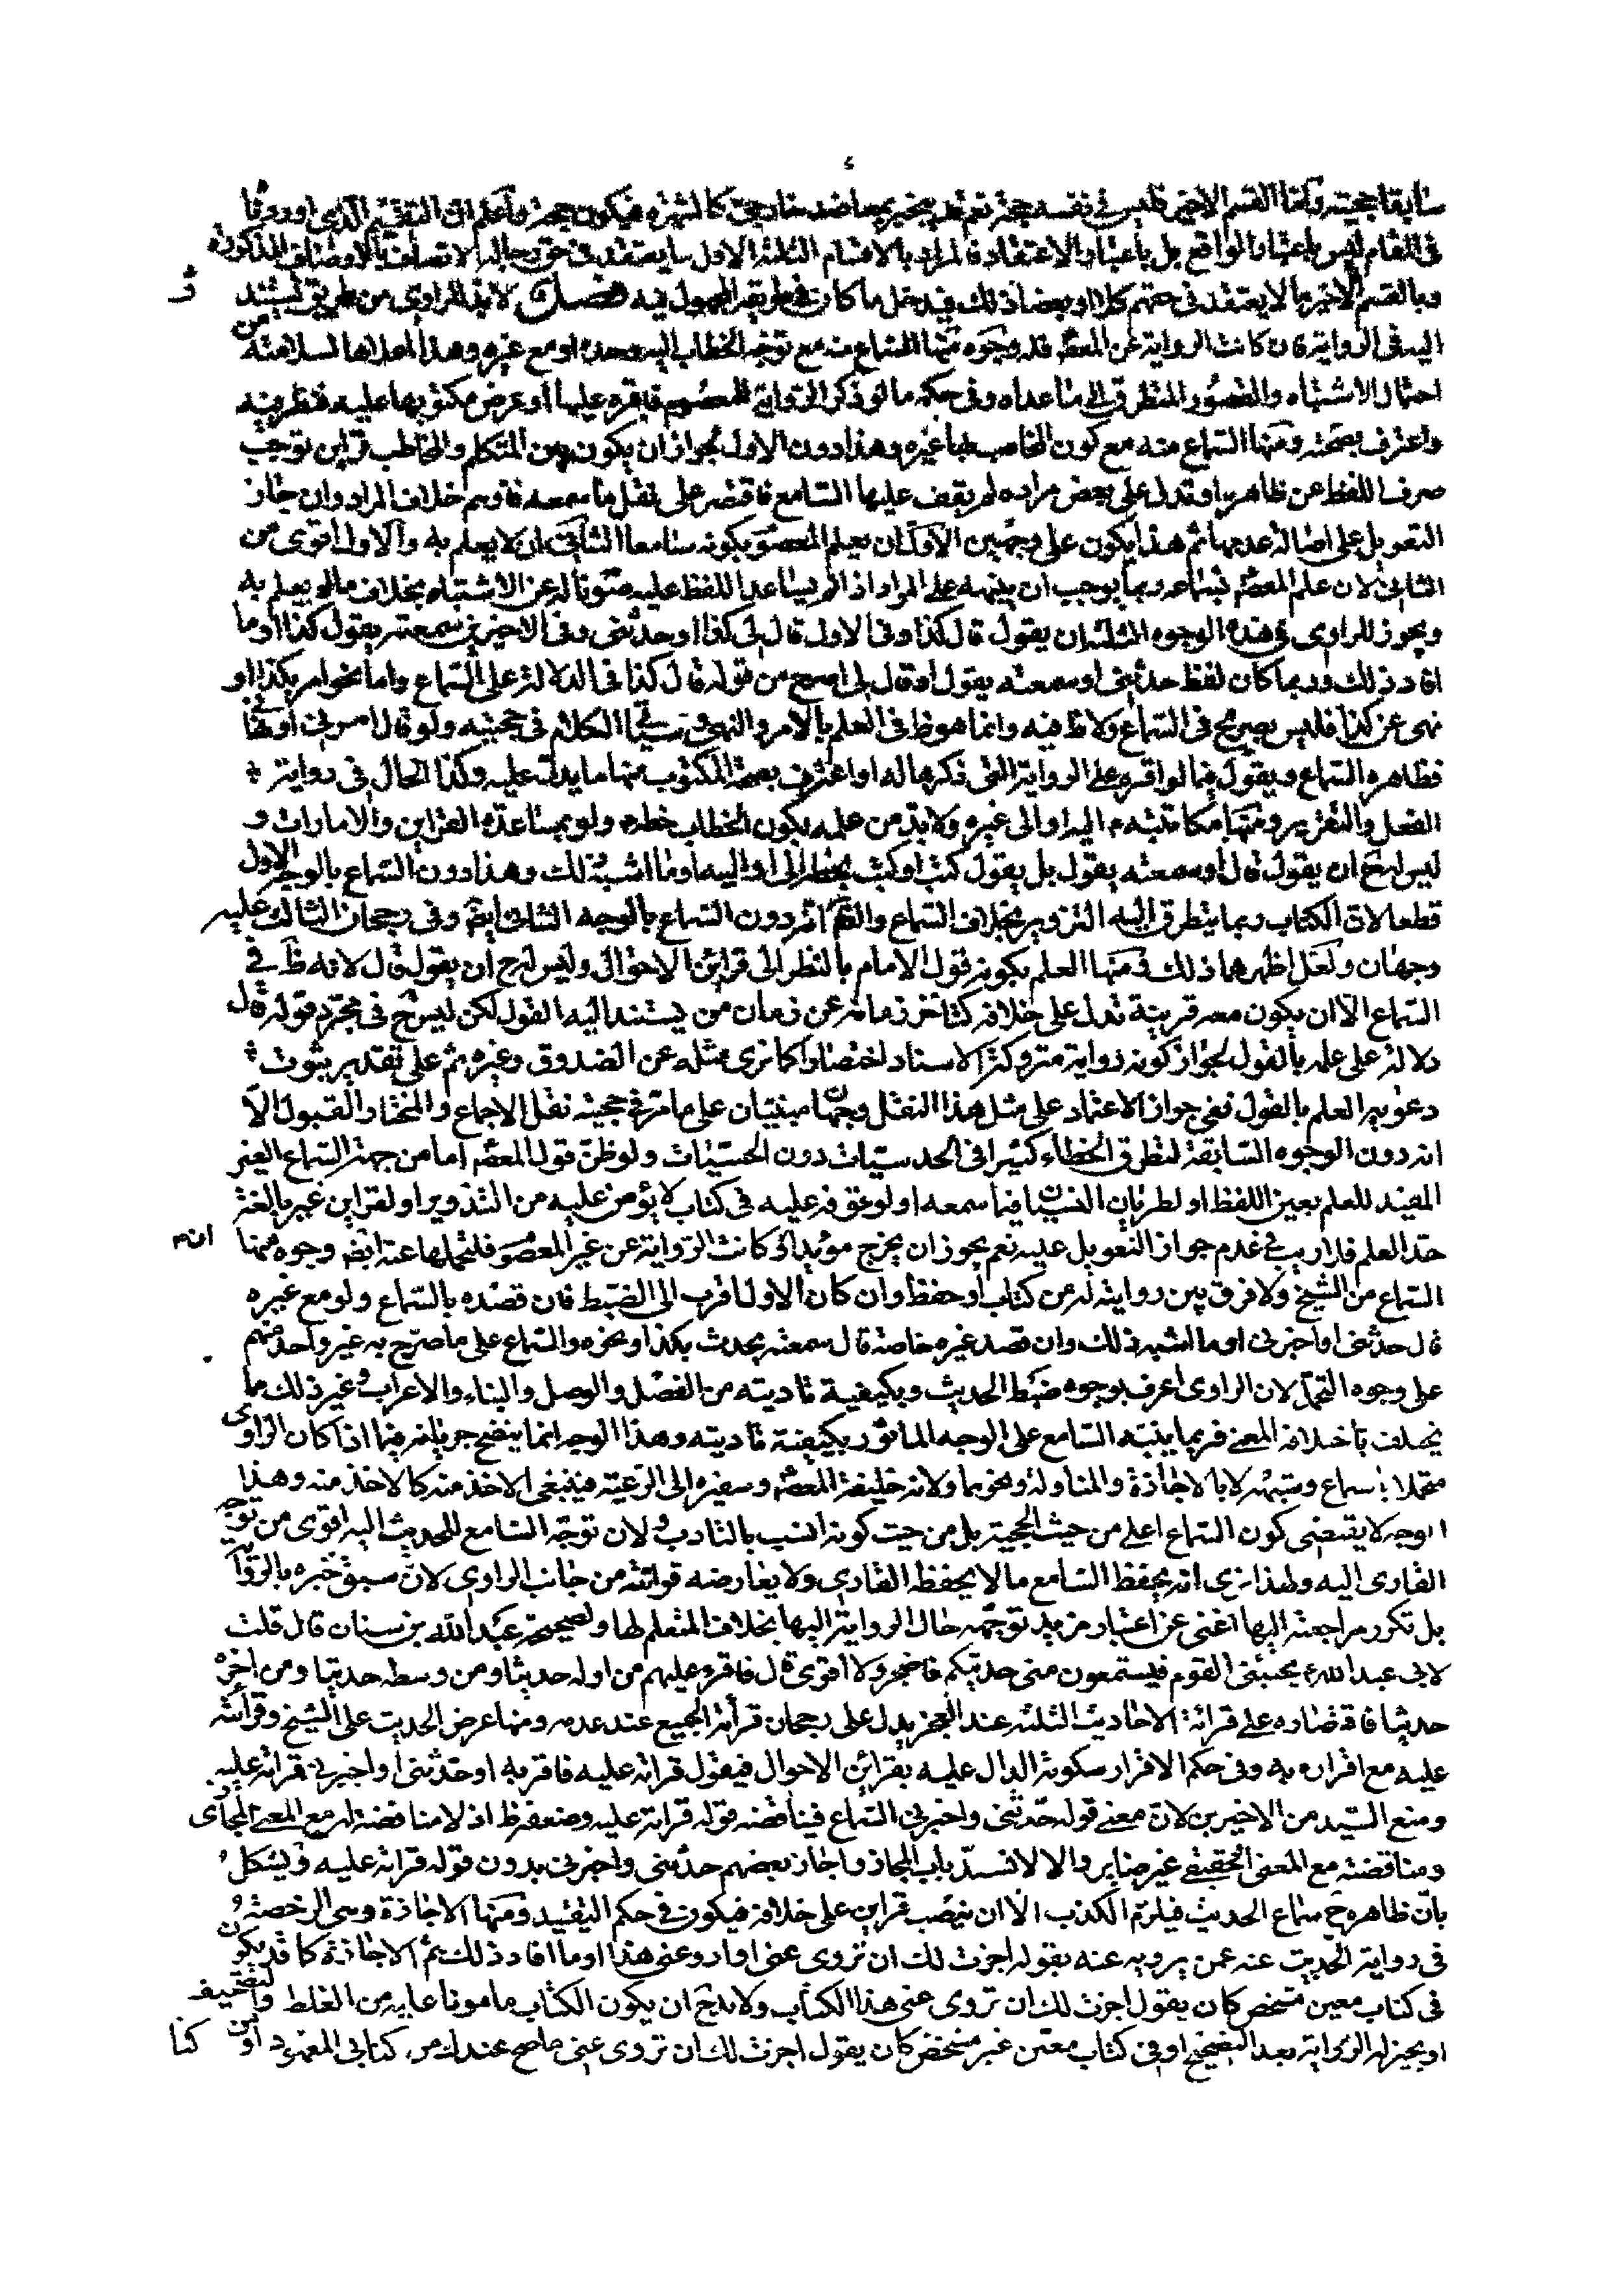 سابقا حجيته وامّا القسم الاخير فليس في نفسه حجة نعم قد ينجبر بمعاضد خارجي كالشهرة فيكون حجة واعلم ان التقسيم الذي اوردنا
في المقام ليس باعتبار الواقع بل باعتبار الاعتقاد فالمراد بالاقسام الثلثة الاول ما يعتقد في حق رجاله الاتصاف بالاوصاف المذكورة
وبالقسم الاخير ما لا يعتقد في حقهم كلا او بعضا ذلك فيدخل ما كان في طريقه المجهول فيه فصل لا بد للراوي من طريق يستند
اليه في الرواية فان كانت الرواية عن المعصم فله وجوه منها السماع منه مع توجه الخطاب اليه وحده او مع غيره وهذا اعلاها لسلامته من
احتمال الاشتباه والقصور المتطرق الى ما عداه وفي حكمه ما لو ذكر الرواية للمعصوم فاقره عليها او عرض مكتوبها عليه فنظر فيه
واعترف بصحته ومنها السماع منه مع كون المخاطب بها غيره وهذا دون الاول لجواز ان يكون بين المتكلم والمخاطب قراين توجب
صرف اللفظ عن ظاهره او تدل على بعض مراده لم يقف عليها السامع فاقتصر على نقل ما سمعه فاوهم خلاف المراد وان جاز
التعويل على اصالة عدمها ثم هذا يكون على وجهين الاول ان يعلم المعصو بكونه سامعا الثاني ان لا يعلم به والاول اقوى من
الثاني لان علم المعصم بسماعه ربما يوجب ان ينبهه على المراد اذا لم يساعد اللفظ عليه صونا له عن الاشتباه بخلاف ما لم يعلم به
ويجوز للراوي في هذه الوجوه الثلثة ان يقول قال كذا وفي الاول قال لي كذا او حدثني وفي الاخيرين سمعته يقول كذا او ما
افاد ذلك وربما كان لفظ حدثني او سمعته يقول او قال لي اصرح من قوله قال كذا في الدلالة على السماع واما نحو امر بكذا او
نهى عن كذا فليس بصريح في السماع ولا ظ فيه وانما هو ظ في العلم بالامر والنهي وسيأتي الكلام في حجيته ولو قال امرني او نهاني
فظاهره السماع ويقول فيما لو اقره على الرواية التي ذكرها له او اعترف بصحة المكتوب منها ما يدل عليه وكذا الحال في رواية
الفعل والتقرير ومنها مكاتبته ع اليه او الى غيره ولا بد من علمه بكون الخطاب خطه ولو بمساعدة القراين والامارات و
ليس له ح ان يقول قال او سمعته يقول بل يقول كتب او كتب بخطه الي او اليه او ما اشبه ذلك وهذا دون السماع بالوجه الاول
قطعا لان الكتاب ربما يتطرق اليه التزوير بخلاف السماع والظ انه دون السماع بالوجه الثاني ايضا وفي رجحان الثالث عليه
وجهان ولعل اظهرهما ذلك ومنها العلم بكونه قول الامام بالنظر الى قرائن الاحوال وليس له ح ان يقول قال لانه ظ في
السماع الا ان يكون معه قرينة تدل على خلافه كتاخر زمانه عن زمان من يستند اليه القول لكن ليس ح في مجرد قوله قال
دلالة على علمه بالقول لجواز كونه رواية متروكة الاسناد اختصارا كما نرى مثله عن الصدوق وغيره ثم على تقدير ثبوت
دعويه العلم بالقول ففي جواز الاعتماد على مثل هذا النقل وجهان مبنيان على ما مر في حجية نقل الاجماع والمختار القبول الا
انه دون الوجوه السابقة لتطرق الخطاء كثيرا في الحدسيات دون الحسيات ولو ظن قول المعصم اما من جهة السماع الغير
المفيد للعلم بعين اللفظ او لطريان النسيان فيما سمعه او لوقوفه عليه في كتاب لا يؤمن عليه من التزوير او لقراين غير بالغة
حد العلم فلا ريب في عدم جواز التعويل عليه نعم يجوز ان يخرج مؤيدا وان كانت الرواية عن غير المعصو فلتحملها عنه ايضا وجوه منها
السماع من الشيخ ولا فرق بين روايته له من كتاب او حفظ وان كان الاول اقرب الى الضبط فان قصده بالسماع ولو مع غيره
قال حدثني او اخبرني او ما اشبه ذلك وان قصد غيره خاصة قال سمعته يحدث بكذا او نحوه والسماع على ما صرح به غير واحد منهم
على وجوه التحمل لان الراوي اعرف بوجوه ضبط الحديث وبكيفية تاديته من الفصل والوصل والبناء والاعراب وغير ذلك مما
يختلف باختلافه المعنى فربما ينبه السامع على الوجه الماثور بكيفية تاديته وهذا الوجه انما يتضح جريانه فيما اذا كان الراوي
متحملا بالسماع وشبهه لا بالاجازة والمناولة ونحوهما ولانه خليفة المعصم وسفيره الى الرعية فينبغي الاخذ منه كالاخذ منه وهذا
الوجه لا يقتضي كون السماع اعلى من حيث الحجية بل من حيث كونه انسب بالتادب ولان توجه السامع للحديث اليه اقوى من توجه
القاري اليه ولهذا نرى انه يحفظ السامع ما لا يحفظه القاري ولا يعارضه قوته من جانب الراوي لان سبق خبره بالرواية
بل تكرر مراجعته اليها اغنى عن اعتبار مزيد توجهه حال الرواية اليها بخلاف المتعلم لها ولصحيحة عبد الله بن سنان قال قلت
لابي عبد الله ع يجيئني القوم فيستمعون مني حديثكم فاضجر ولا اقوى قال فاقرء عليهم من اوله حديثا ومن وسطه حديثا ومن اخره
حديثا فاقتصاره على قرائة الاحاديث الثلثة عند العجز يدل على رجحان قرائة الجميع عند عدمه ومنها عرض الحديث على الشيخ وقرائته
عليه مع اقراره به وفي حكم الاقرار سكوته الدال عليه بقرائن الاحوال فيقول قراته عليه فاقر به او حدثني او اخبرني قرائة عليه
ومنع السيد من الاخيرين لان معنى قوله حدثني واخبرني السماع فيناقضه قوله قرائة عليه وضعفه ظ اذ لا مناقضة له مع المعنى المجازي
ومناقضته مع المعنى الحقيقي غير ضاير والا لانسد باب المجاز واجاز بعضهم حدثني واخبرني بدون قوله قرائة عليه ويشكل
بان ظاهره ح سماع الحديث فيلزم الكذب الا ان ينصب قراين على خلافه فيكون في حكم التقييد ومنها الاجازة وهي الرخصة
في رواية الحديث عنه عمن يرويه عنه بقوله اجزت لك ان تروي عني او ارو عني هذا او ما افاد ذلك ثم الاجازة كما قد يكون
في كتاب معين مشخص كان يقول اجزت لك ان تروي عني هذا الكتاب ولا بد ح ان يكون الكتاب مامونا عليه من الغلط والتصحيف
او يجيز له الرواية بعد التصحيح او في كتاب معين غير مشخص كان يقول اجزت لك ان تروي عني ما صح عندك من كتابي المعهود او من كتا